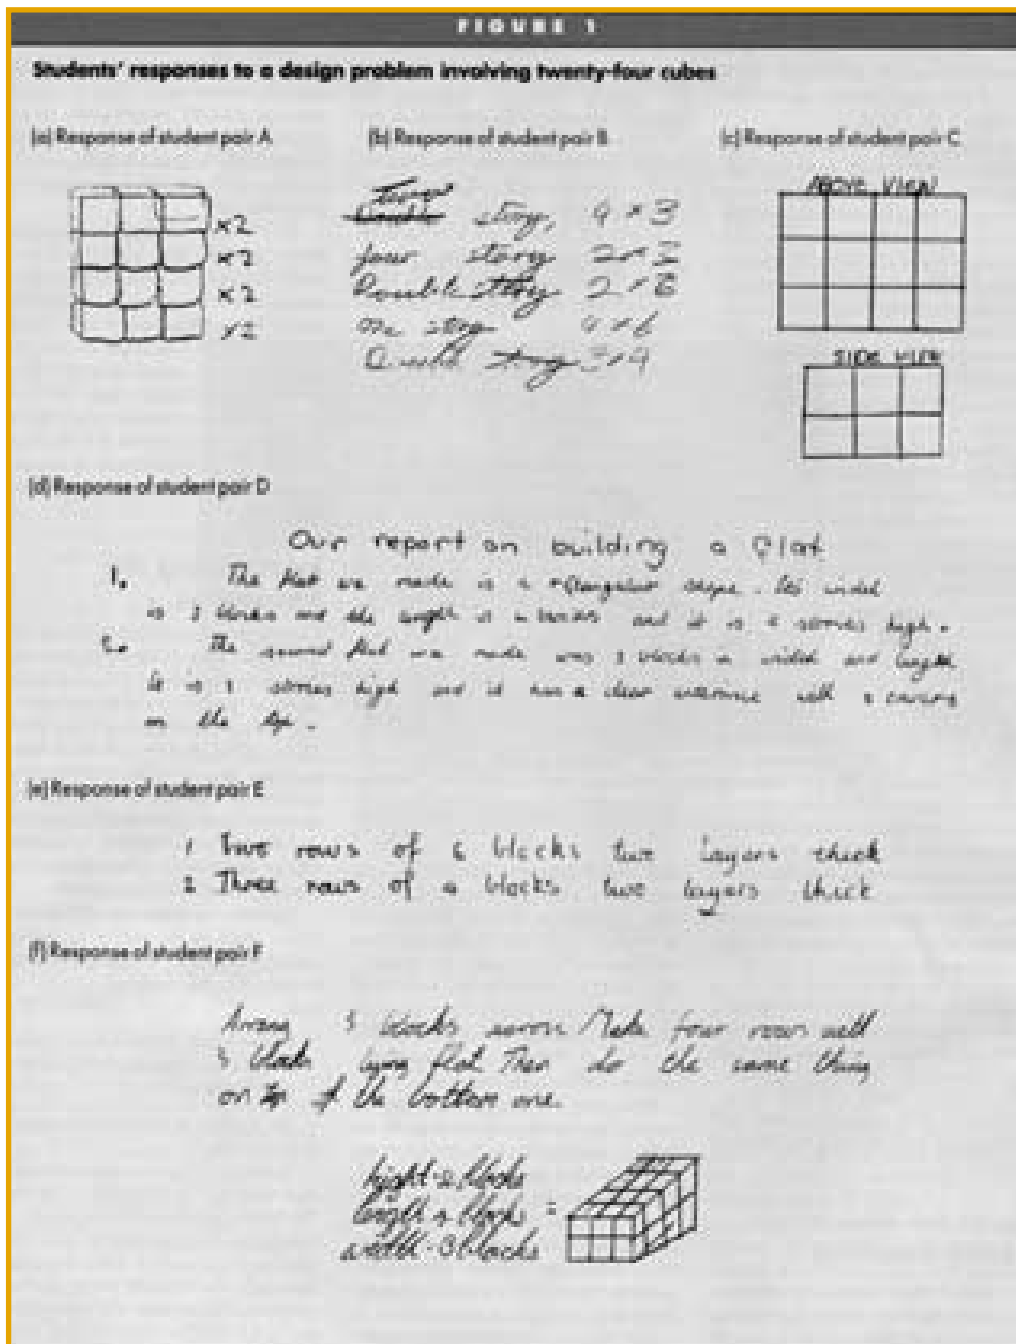 FIGURE 1
Students' responses to a design problem involving twenty-four cubes
(a) Response of student pair A
(b) Response of student pair B
(c) Response of student pair C
x2
x2
x2
x2
story, 4 x 3
four story 2 x 3
Double story 2 x 6
One story 4 x 6
story 3 x 4
ABOVE VIEW
SIDE VIEW
(d) Response of student pair D
Our report on building a flat
1. The flat we made is a shape. Its
is 3 blocks and the is blocks and it is stories high.
2. The second flat we made was 3 blocks in and length
it is 3 stories high and it has a clear with a
on the top.
(e) Response of student pair E
1 Two rows of 6 blocks two layers thick
2 Three rows of 4 blocks two layers thick
(f) Response of student pair F
3 blocks Make four rows
3 blocks lying flat Then do the same thing
on top of the bottom one.
height-2 blocks
length blocks =
width-3 blocks